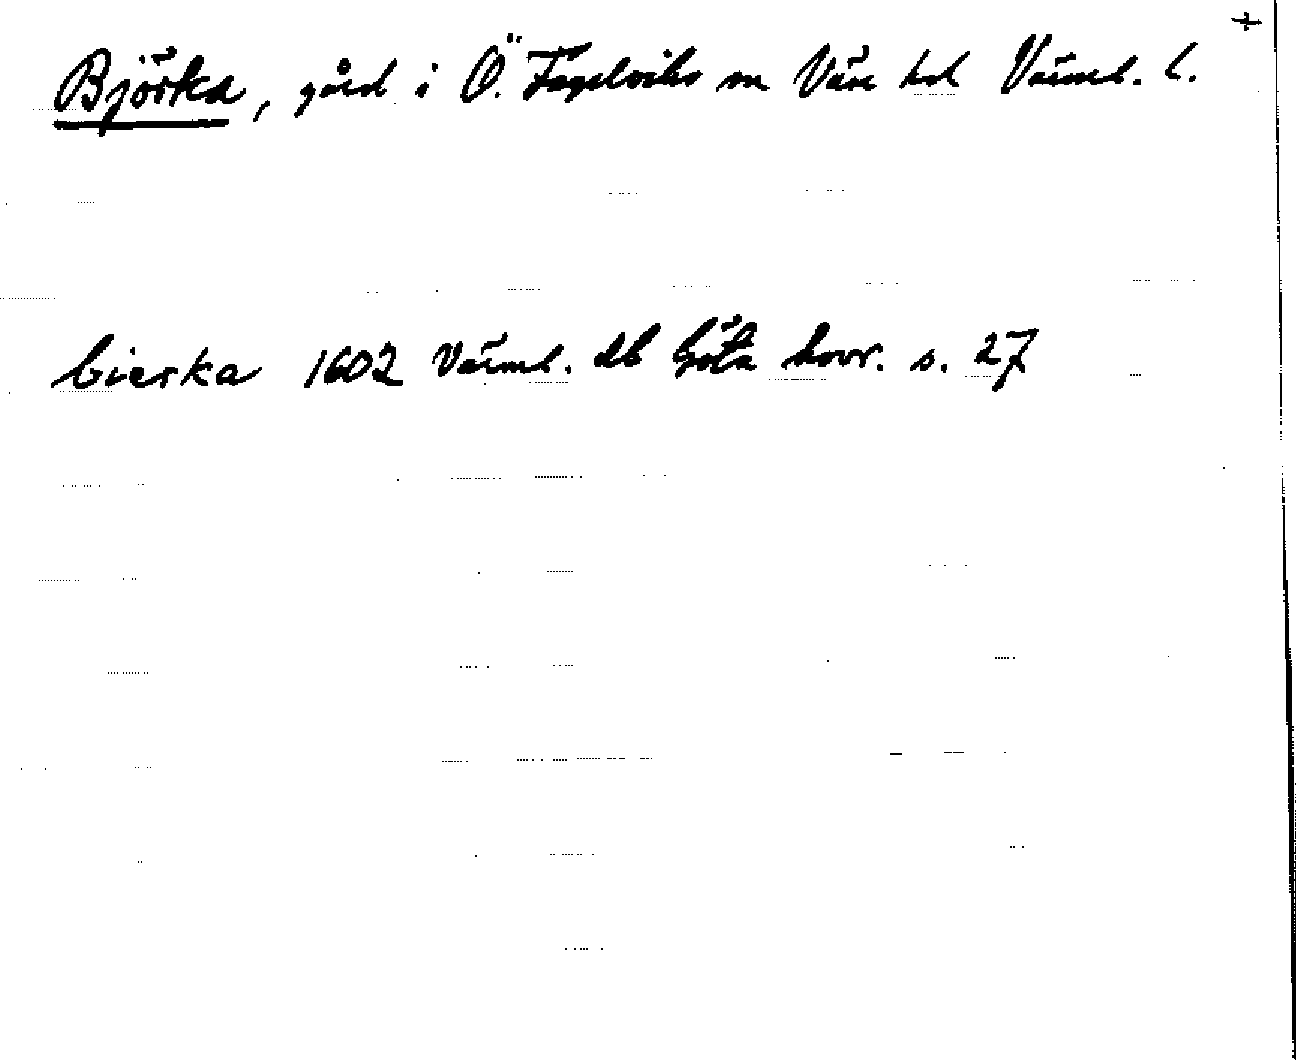 +
Björka, gård i Ö. Fagelviks sn Väse hd Värml. l.
bierka 1602 Värml. db Göta hovr. s. 27